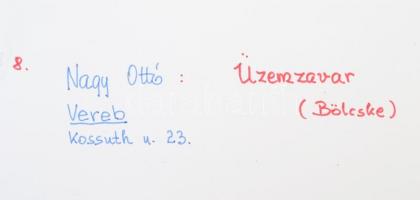 8. Nagy Ottó : Üzemzavar
Vereb (Bölcske)
Kossuth u. 23.